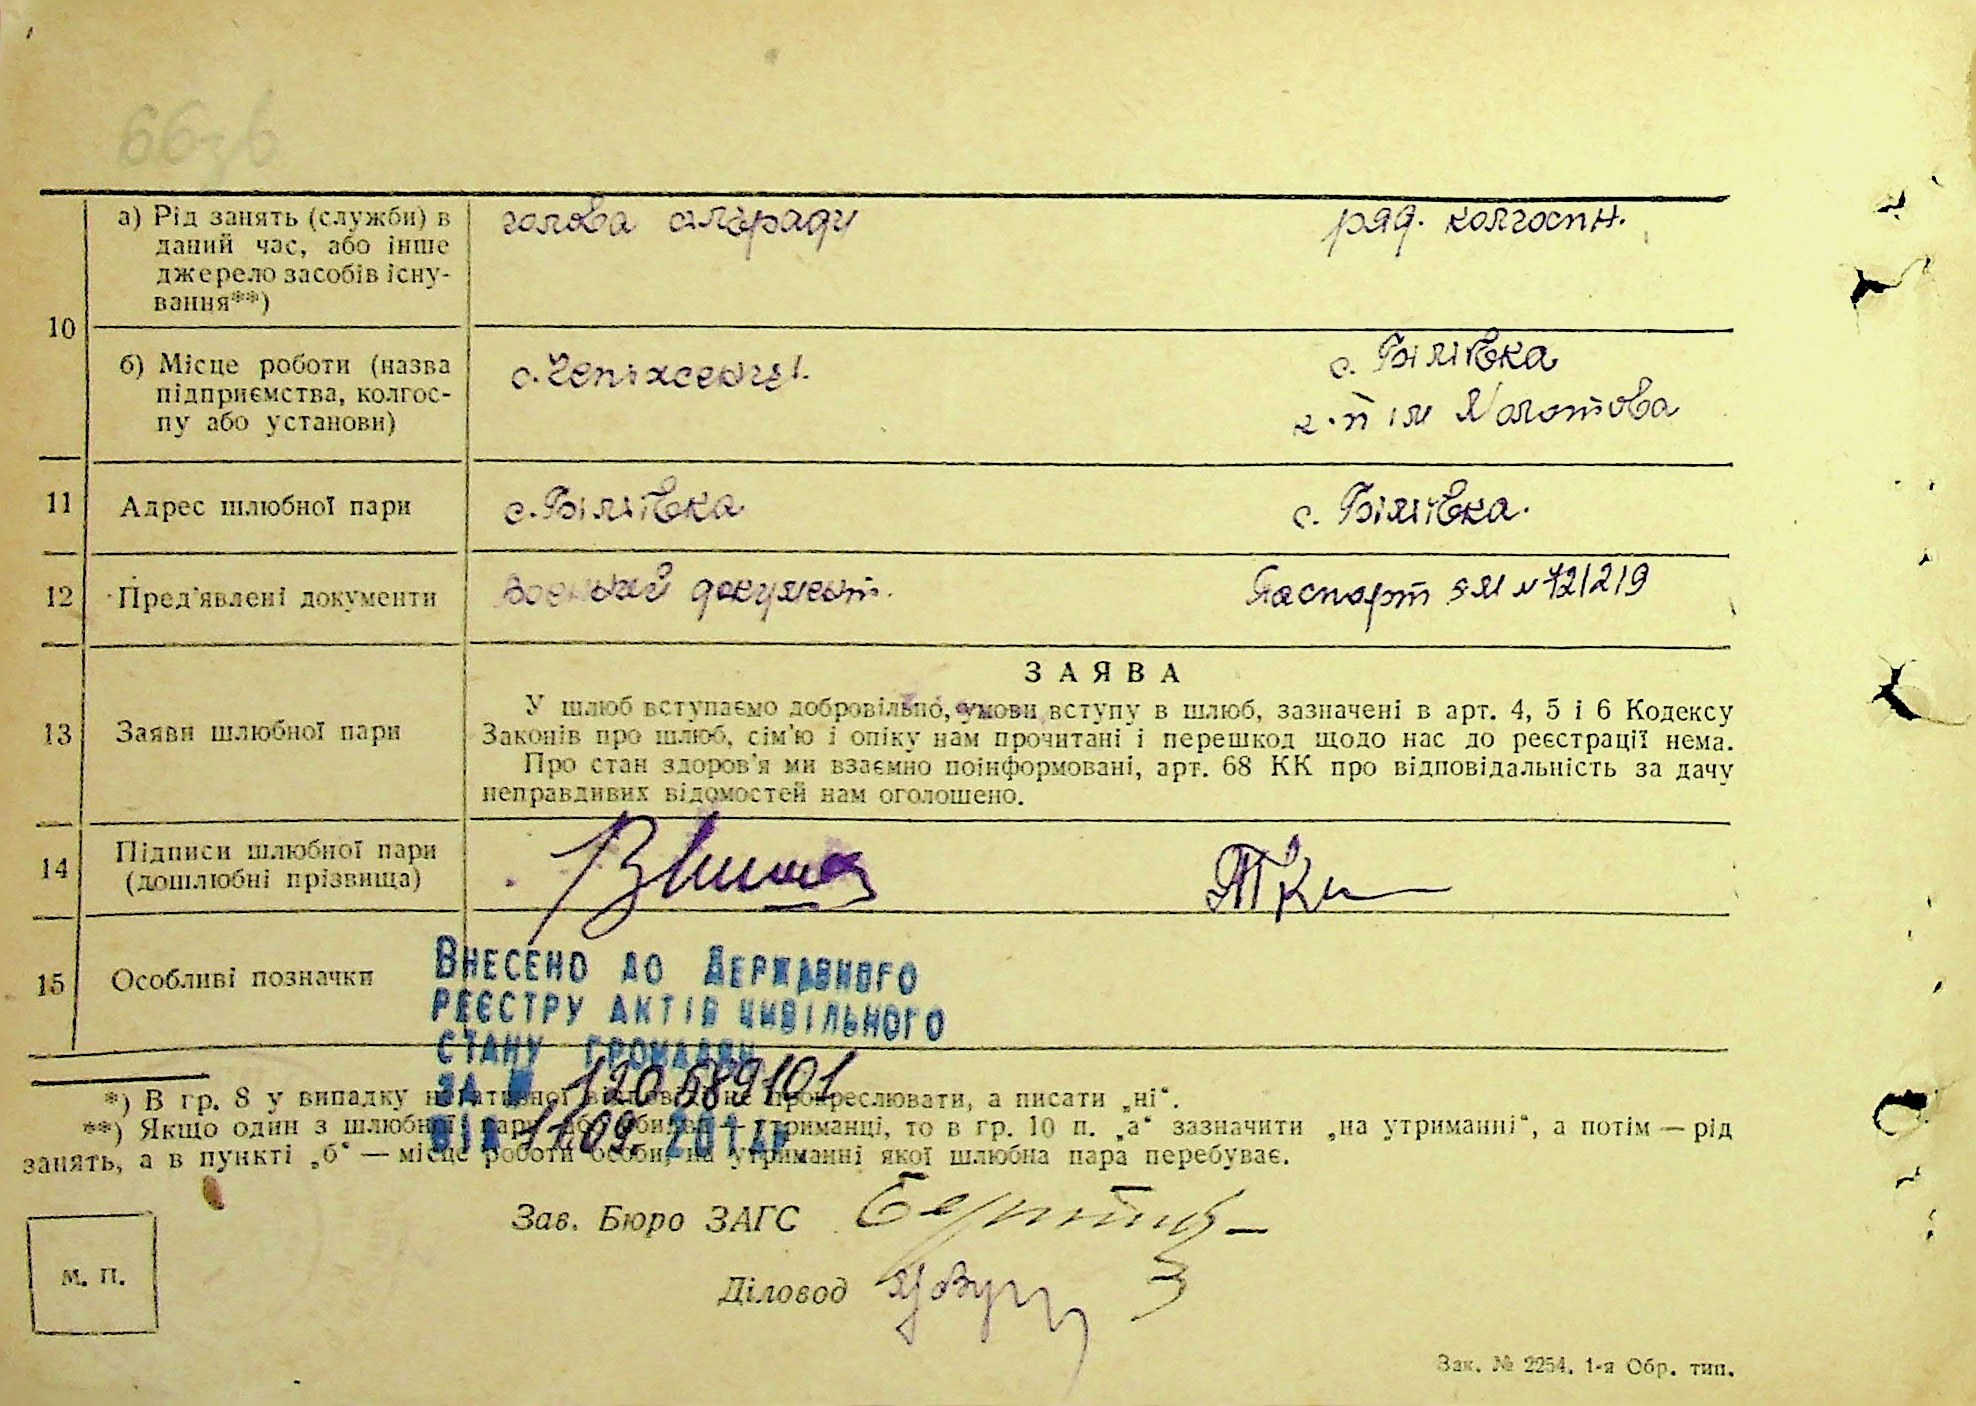 66зв
10
а) Рід занять (служби) в
даний час, або інше
джерело засобів існу-
вання**)
голова сільради
ряд. колгоспн.
б) Місце роботи (назва
підприємства, колгос-
пу або установи)
с. Білівка
к-п ім Молотова
11
Адрес шлюбної пари
с. Білівка
с. Білівка.
12
Пред'явлені документи
Военьмій документ.
Паспорт № 721219
13
Заяви шлюбної пари
ЗАЯВА
У шлюб вступаємо добровільно, умови вступу в шлюб, зазначені в арт. 4, 5 і 6 Кодексу
Законів про шлюб, сім'ю і опіку нам прочитані і перешкод щодо нас до реєстрації нема.
Про стан здоров'я ми взаємно поінформовані, арт. 68 КК про відповідальність за дачу
неправдивих відомостей нам оголошено.
14
Підписи шлюбної пари
(дошлюбні прізвища)
15
Особливі позначки
Внесено до Державного
реєстру актів цивільного
стану громадян
за № 120589101
від 11.09. 2014р.
*) В гр. 8 у випадку негативної відповіді не прокреслювати, а писати „ні“.
**) Якщо один з шлюбної пари або обидва — утриманці, то в гр. 10 п. „а“ зазначити „на утриманні“, а потім — рід
занять, а в пункті „б“ — місце роботи особи, на утриманні якої шлюбна пара перебуває.
Зав. Бюро ЗАГС
Діловод
М. П.
Зак. № 2254. 1-я Обр. тип.